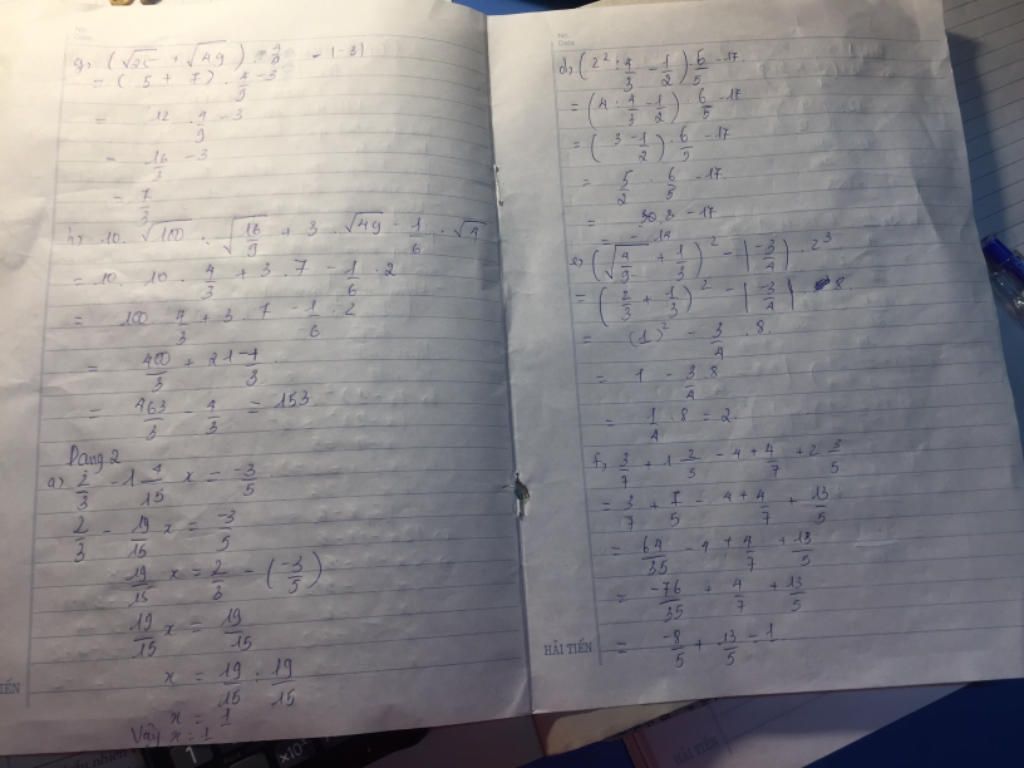 No.
Date.
g, (√25 + √49) · 4/9 - |-3|
= (5 + 7) · 4/9 - 3
= 12 · 4/9 - 3
= 16/3 - 3
= 7/3
h, 10 · √100 · √16/9 + 3 · √49 - 1/6 · √4
= 10 · 10 · 4/3 + 3 · 7 - 1/6 · 2
= 100 · 4/3 + 3 · 7 - 1/6 · 2
= 400/3 + 21 - 1/3
= 463/3 - 4/3 = 153
Dạng 2
a) 2/3 - 1 4/15 x = -3/5
2/3 - 19/15 x = -3/5
19/15 x = 2/3 - (-3/5)
19/15 x = 19/15
x = 19/15 : 19/15
x = 1
Vậy x = 1
TIẾN
No.
Date.
d, (2² : 4/3 - 1/2) · 6/5 - 17
= (4 : 4/3 - 1/2) · 6/5 - 17
= (3 - 1/2) · 6/5 - 17
= 5/2 · 6/5 - 17
= 3 - 17
= -14
e, (√4/9 + 1/3)² - |-3/4| · 2³
= (2/3 + 1/3)² - |-3/4| · 8
= (1)² - 3/4 · 8
= 1 - 3/4 · 8
= 1/4 · 8 = 2
f, 3/7 + 1 2/5 - 4 + 4/7 + 2 3/5
= 3/7 + 7/5 - 4 + 4/7 + 13/5
= 64/35 - 4 + 4/7 + 13/5
= -76/35 + 4/7 + 13/5
= -8/5 + 13/5 = 1
HẢI TIẾN
HẢI TIẾN